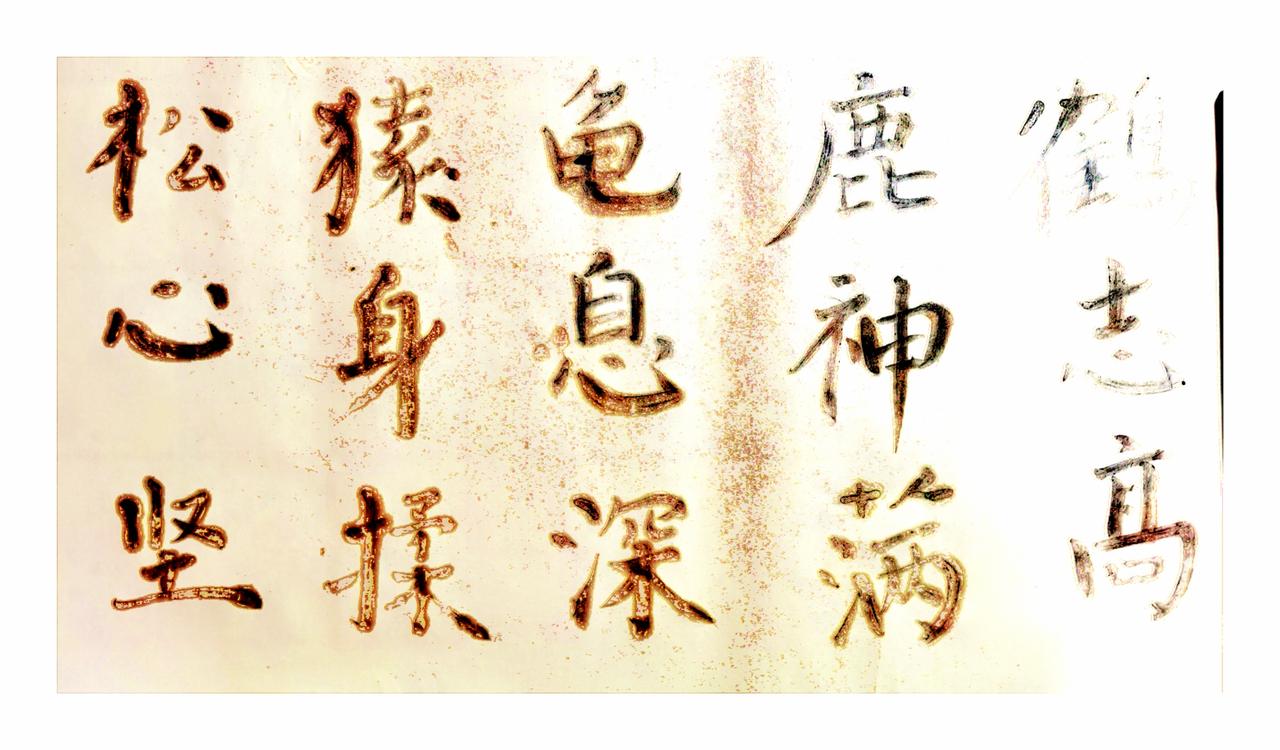 鶴志髙
鹿神满
龟息深
猿身揉
松心坚